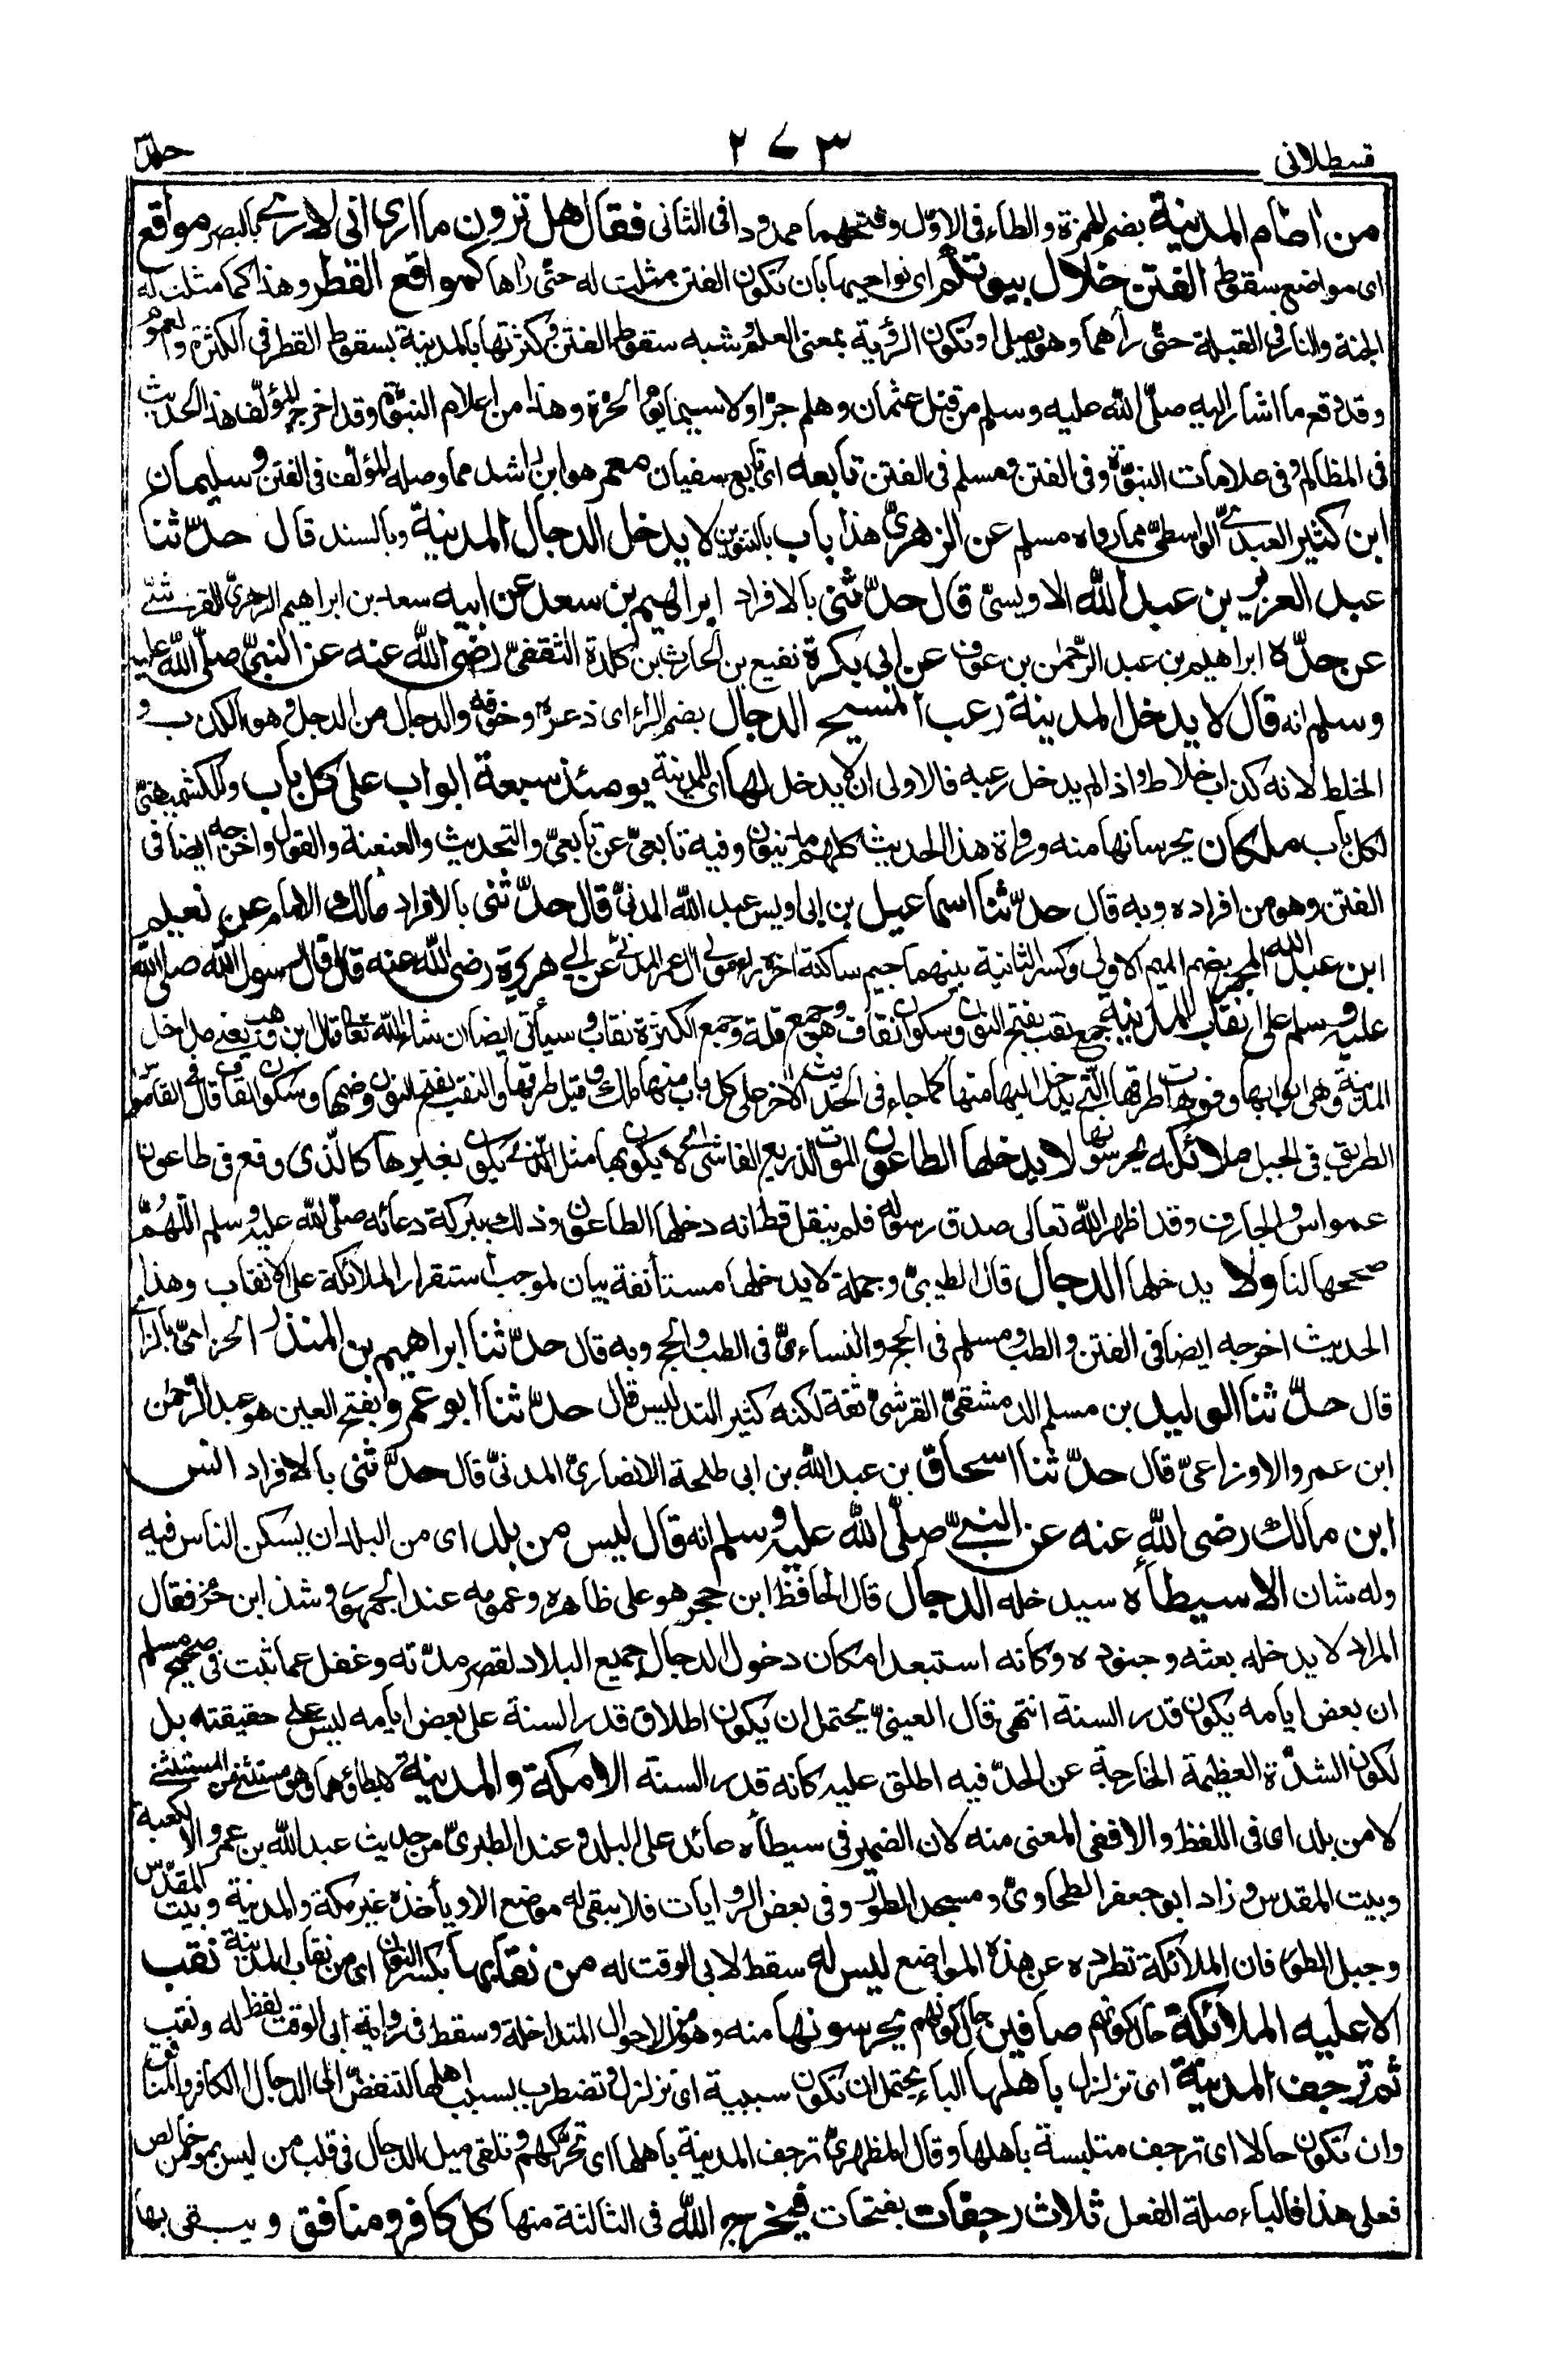 قسطلانی ٢٧٣
من اٰطام المدينة بضم الهمزة والطاء فى الاوّل وفتحهما ممدودا فى الثانى فقال هل ترون ما ارى انى لارى بالبصر مواقع
اى مواضع سقوط الفتن خلال بيوتكم اى نواحيها بان تكون الفتن مثلت له حتى رآها كمواقع القطر وهذا كما مثلت له
الجنة والنار فى القبلة حتى رآهما وهو يصلى او تكون الرؤية بمعنى العلم وشبه سقوط الفتن وكثرتها بالمدينة بسقوط القطر فى الكثرة والعموم
وقد وقع ما اشار اليه صلّى الله عليه وسلم من قتل عثمان وهلم جرّا ولا سيما يوم الحرة وهذا من اعلام النبوّة وقد اخرج المؤلّف هذا الحديث
فى المظالم وفى علامات النبوّة وفى الفتن ومسلم فى الفتن تابعه اى تابع سفيان معمر هو ابن راشد مما وصله المؤلف فى الفتن و سليمان
ابن كثير العبدىّ الواسطىّ مما رواه مسلم عن الزهرىّ هذا باب بالتنوين لا يدخل الدجال المدينة وبالسند قال حدّثنا
عبد العزيز بن عبد الله الاويسىّ قال حدّثنى بالافراد ابراهيم بن سعد عن ابيه سعد بن ابراهيم الزهرىّ القرشىّ
عن جدّه ابراهيم بن عبد الرّحمٰن بن عوف عن ابى بكرة نفيع بن الحارث بن كلدة الثقفىّ رضى الله عنه عن النبىّ صلّى الله عليه
وسلم انه قال لا يدخل المدينة رعب المسيح الدجال بضم الراء اى ذعره وخوفه والدجال من الدجل وهو الكذب و
الخلط لانه كذاب خلاط واذا لم يدخل رعبه فالاولى ان لا يدخل لها اى للمدينة يومئذ سبعة ابواب على كل باب وللكشميهنىّ
لكل باب ملكان يحرسانها منه ورواة هذا الحديث كلهم مدنيون وفيه تابعىّ عن تابعىّ والتحديث والعنعنة والقول واخرجه ايضا فى
الفتن وهو من افراده وبه قال حدّثنا اسماعيل بن ابى اويس عبد الله المدنىّ قال حدّثنى بالافراد مالك الامام عن نعيم
ابن عبد الله المجمر بضم الميم الاولى وكسر الثانية بينهما جيم ساكنة اخره راء مولى ال عمر المدنىّ عن ابى هريرة رضى الله عنه قال قال رسول الله صلى الله
عليه وسلم على انقاب المدينة جمع نقب بفتح النون وسكون القاف وهو جمع قلة وجمع الكثرة نقاب وسيأتى ايضا ان شاء الله تعالى قال ابن وهب يعنى مداخل
المدينة وهى ابوابها وفوهات طرقها التى يدخل اليها منها كما جاء فى الحديث الاخر على كل باب منها ملك وقيل طرقها والنقب بفتح النون وضمها وسكون القاف قال فى القاموس
الطريق فى الجبل ملائكة يحرسونها لا يدخلها الطاعون الموت الذريع الفاشى اى لا يكون بها مثل الذى يكون بغيرها كالّذى وقع فى طاعون
عمواس والجارف وقد اظهر الله تعالى صدق رسوله فلم ينقل قط انه دخلها الطاعون وذلك ببركة دعائه صلّى الله عليه وسلم اللّهُمَّ
صححها لنا ولا يدخلها الدجال قال الطيبىّ وجملة لا يدخلها مستأنفة بيان لموجب استقرار الملائكة على الانقاب وهذا
الحديث اخرجه ايضا فى الفتن والطب ومسلم فى الحج والنساءىّ فى الطب والحج وبه قال حدّثنا ابراهيم بن المنذر الحزامىّ بالزاى
قال حدّثنا الوليد بن مسلم الدمشقىّ القرشىّ ثقة لكنه كثير التدليس قال حدّثنا ابو عمرو بفتح العين هو عبد الرحمٰن
ابن عمرو الاوزاعىّ قال حدّثنا اسحاق بن عبد الله بن ابى طلحة الانصارىّ المدنىّ قال حدّثنى بالافراد انس
ابن مالك رضى الله عنه عن النبىّ صلّى الله عليه وسلم انه قال ليس من بلد اى من البلدان يسكن الناس فيه
وله شان الا سيطأه سيدخله الدجال قال الحافظ ابن حجر هو على ظاهره وعمومه عند الجمهور وشذ ابن حزم فقال
المراد لا يدخله بعثه وجنوده وكانه استبعد امكان دخول الدجال جميع البلاد لقصر مدّته وغفل عما ثبت فى صحيح مسلم
ان بعض ايامه يكون قدر السنة انتهى قال العينىّ يحتمل ان يكون اطلاق قدر السنة على بعض ايامه ليس على حقيقته بل
لكون الشدّة العظيمة الخارجة عن الحدّ فيه اطلق عليه كانه قدر السنة الا مكة والمدينة لا يطأهما وهو مستثنى من المستثنى
لا من بلد اى فى اللفظ والا ففى المعنى منه لان الضمير فى سيطأه عائد على البلد وعند الطبرىّ من حديث عبد الله بن عمرو الا الكعبة
وبيت المقدس وزاد ابو جعفر الطحاوىّ ومسجد الطور وفى بعض الروايات فلا يبقى له موضع الا ويأخذه غير مكة والمدينة وبيت المقدّس
وجبل الطور فان الملائكة تطرده عن هذه المواضع ليس له سقط لابى الوقت له من نقابها بكسر النون اى من نقاب المدينة نقب
الا عليه الملائكة حال كونهم صافين حال كونهم يحرسونها منه وهو من الاحوال المتداخلة وسقط فى رواية ابى الوقت لفظ له ونقب
ثم ترجف المدينة اى تزلزل باهلها الباء يحتمل ان تكون سببية اى تزلزل وتضطرب بسبب اهلها لتنفض الى الدجال الكافر والمنافق
وان تكون حالا اى ترجف متلبسة باهلها وقال المظهرىّ ترجف المدينة باهلها اى تحركهم وتلقى ميل الدجال فى قلب من ليس بمؤمن خالص
فعلى هذا فالباء صلة الفعل ثلاث رجفات بفتحات فيخرج الله فى الثالثة منها كل كافر ومنافق ويبقى بها